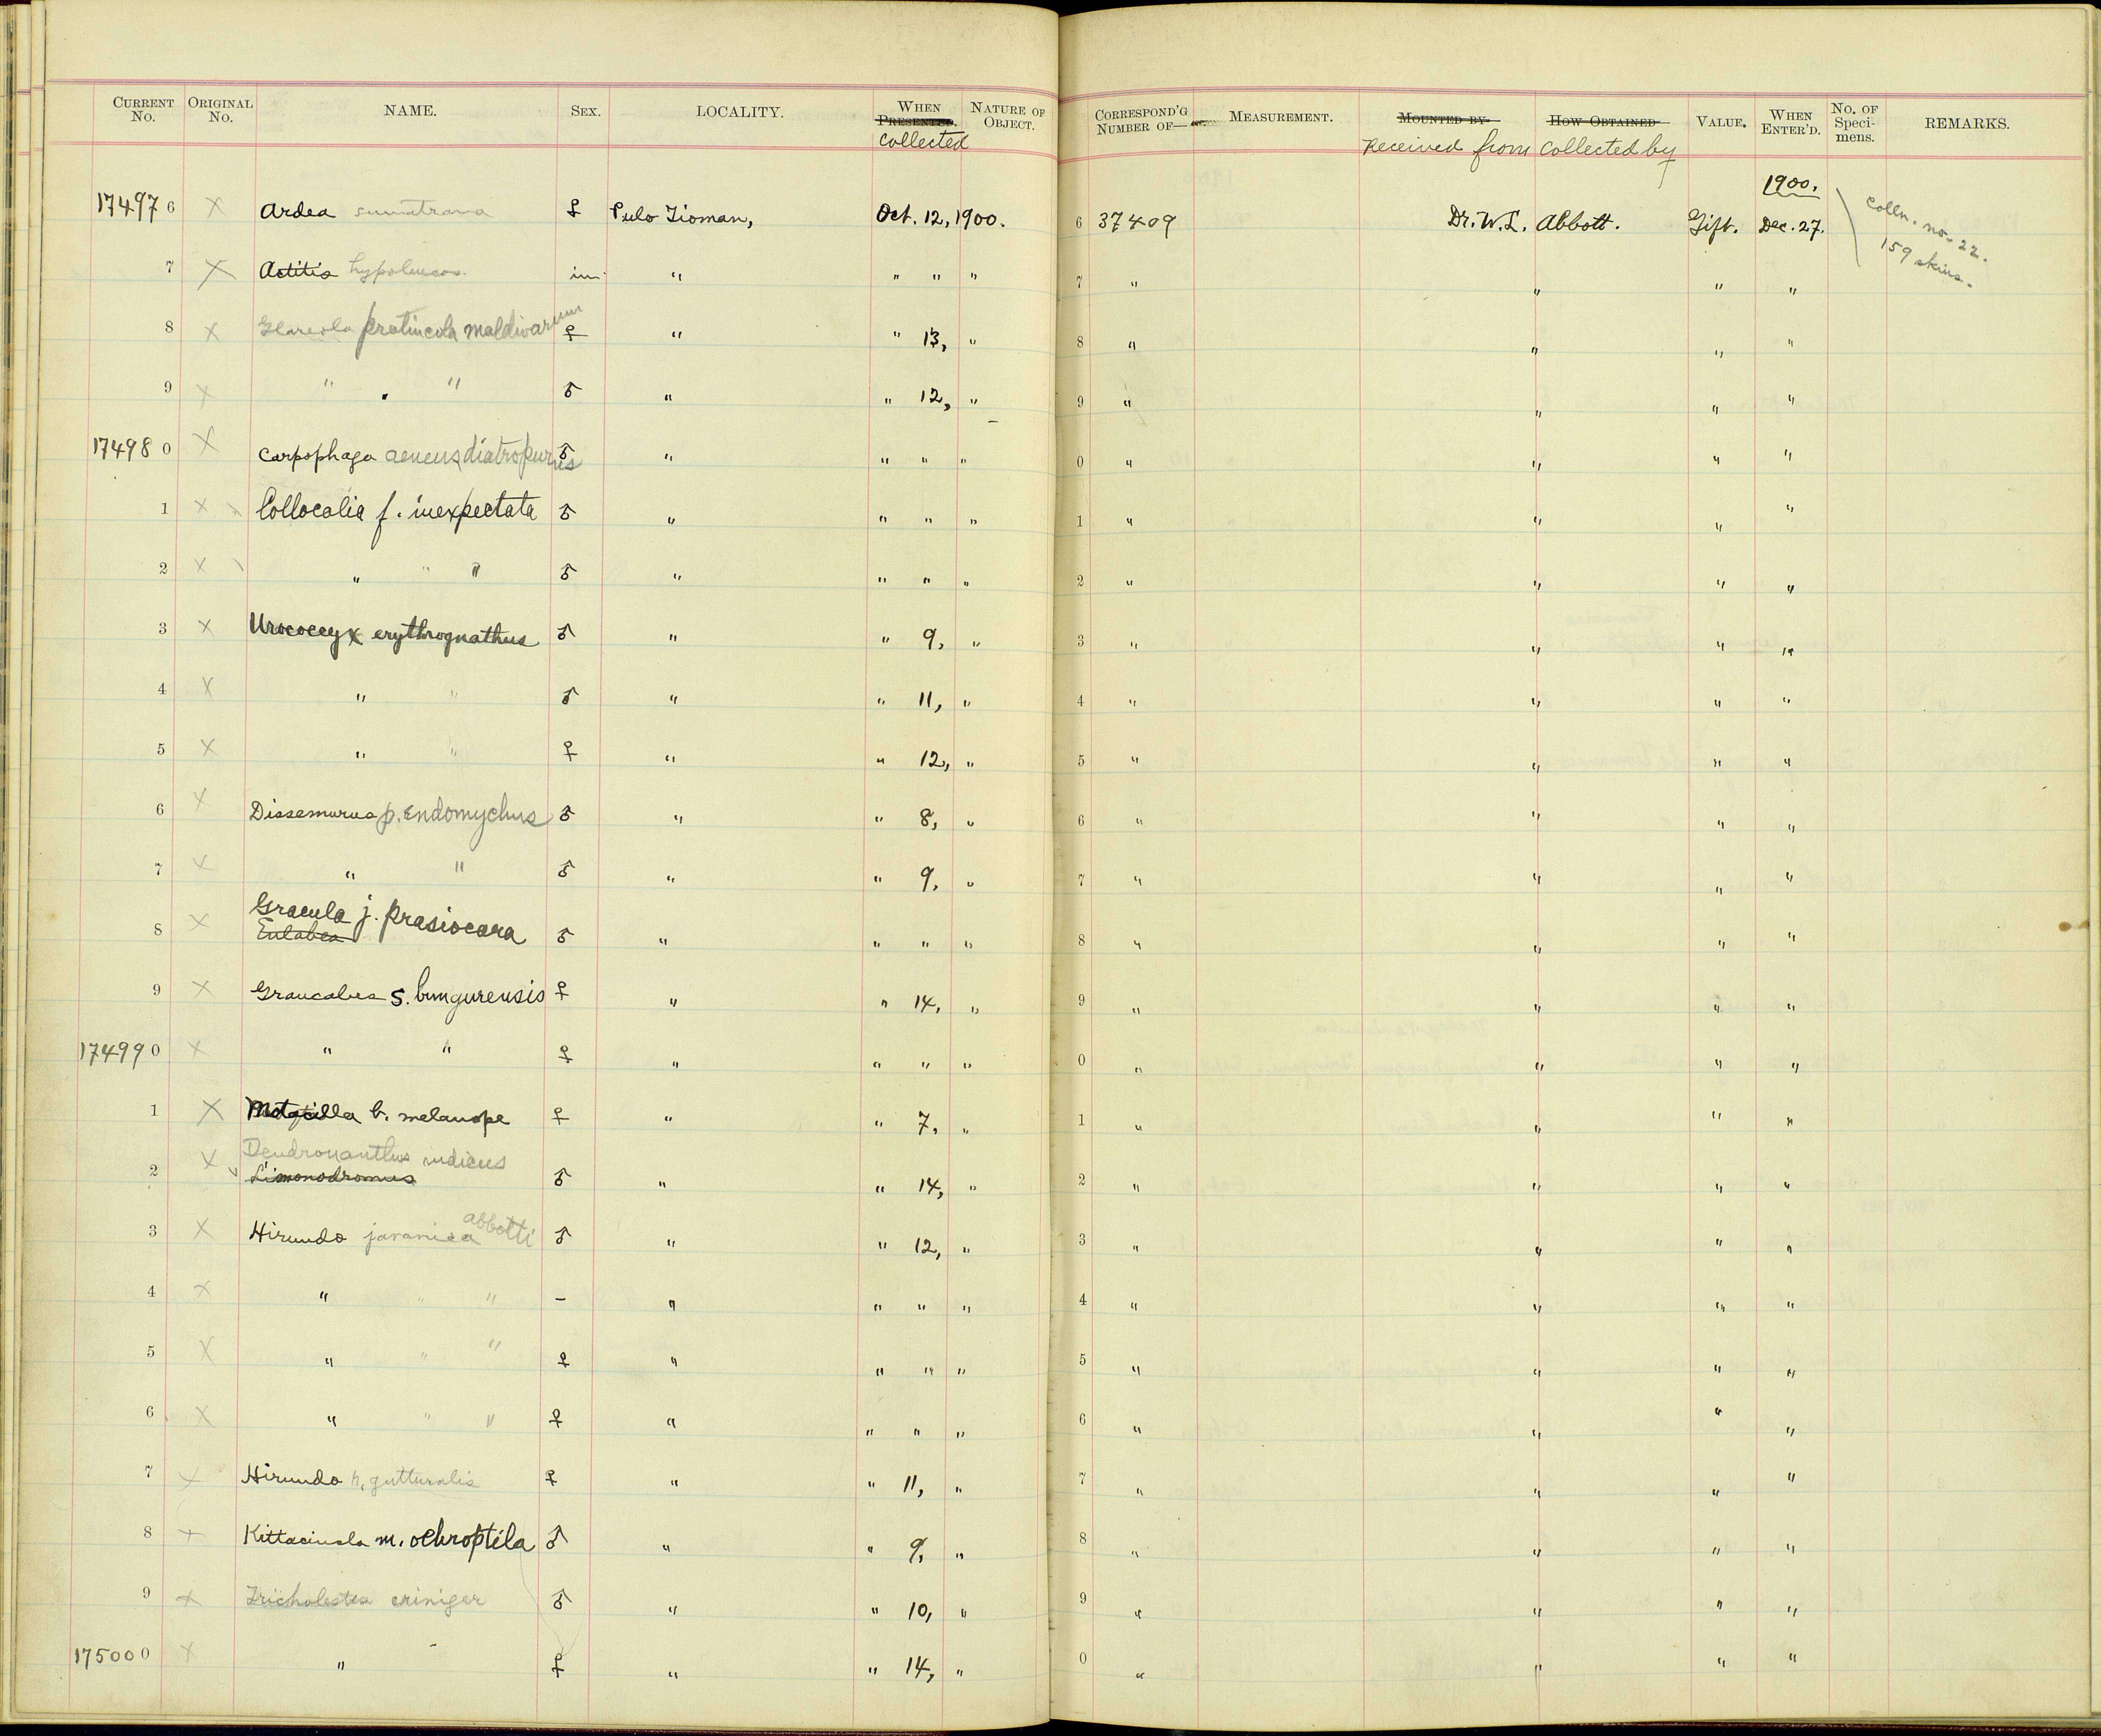 CURRENT No. ORIGINAL No. NAME. SEX. LOCALITY. WHEN PRESENTED. collected NATURE OF OBJECT. CORRESPOND'G NUMBER OF— MEASUREMENT. MOUNTED BY Received from HOW OBTAINED Collected by VALUE. WHEN ENTER'D. No. OF Speci-mens. REMARKS.
1900.
174976 X Ardea sumatrana ♀ Pulo Tioman, Oct. 12, 1900. 6 37409 Dr. W. L. Abbott. Gift. Dec. 27. Colln. no. 22. 159 skins.
7 X Actitis hypoleucos in. " " " " 7 " " " "
8 X Glareola pratincola maldivarum ♀ " " 13, " 8 " " " "
9 X " " ♂ " " 12, " 9 " " " "
174980 X Carpophaga aeneus diatropurus ♂ " " " " 0 " " " "
1 X x Collocalia f. inexpectata ♂ " " " " 1 " " " "
2 X " " " ♂ " " " " 2 " " " "
3 X Urococcyx erythrognathus ♂ " " 9, " 3 " " " "
4 X " " ♂ " " 11, " 4 " " " "
5 X " " ♀ " " 12, " 5 " " " "
6 X Dissemurus p. endomychus ♂ " " 8, " 6 " " " "
7 X " " ♂ " " 9, " 7 " " " "
Gracula j. prasiocara
8 X Eulabea ♂ " " " " 8 " " " "
9 X Graucalus s. bungurensis ♀ " " 14, " 9 " " " "
174990 X " " ♀ " " " " 0 " " " "
1 X Motacilla b. melanope ♀ " " 7, " 1 " " " "
Dendronanthus indicus
2 X Limonodromus ♂ " " 14, " 2 " " " "
3 X Hirundo javanica abbotti ♂ " " 12, " 3 " " " "
4 X " " " – " " " " 4 " " " "
5 X " " " ♀ " " " " 5 " " " "
6 X " " " ♀ " " " " 6 " " " "
7 X Hirundo r. gutturalis ♀ " " 11, " 7 " " " "
8 X Kittacincla m. ochroptila ♂ " " 9, " 8 " " " "
9 X Tricholestes criniger ♂ " " 10, " 9 " " " "
175000 X " ♀ " " 14, " 0 " " " "